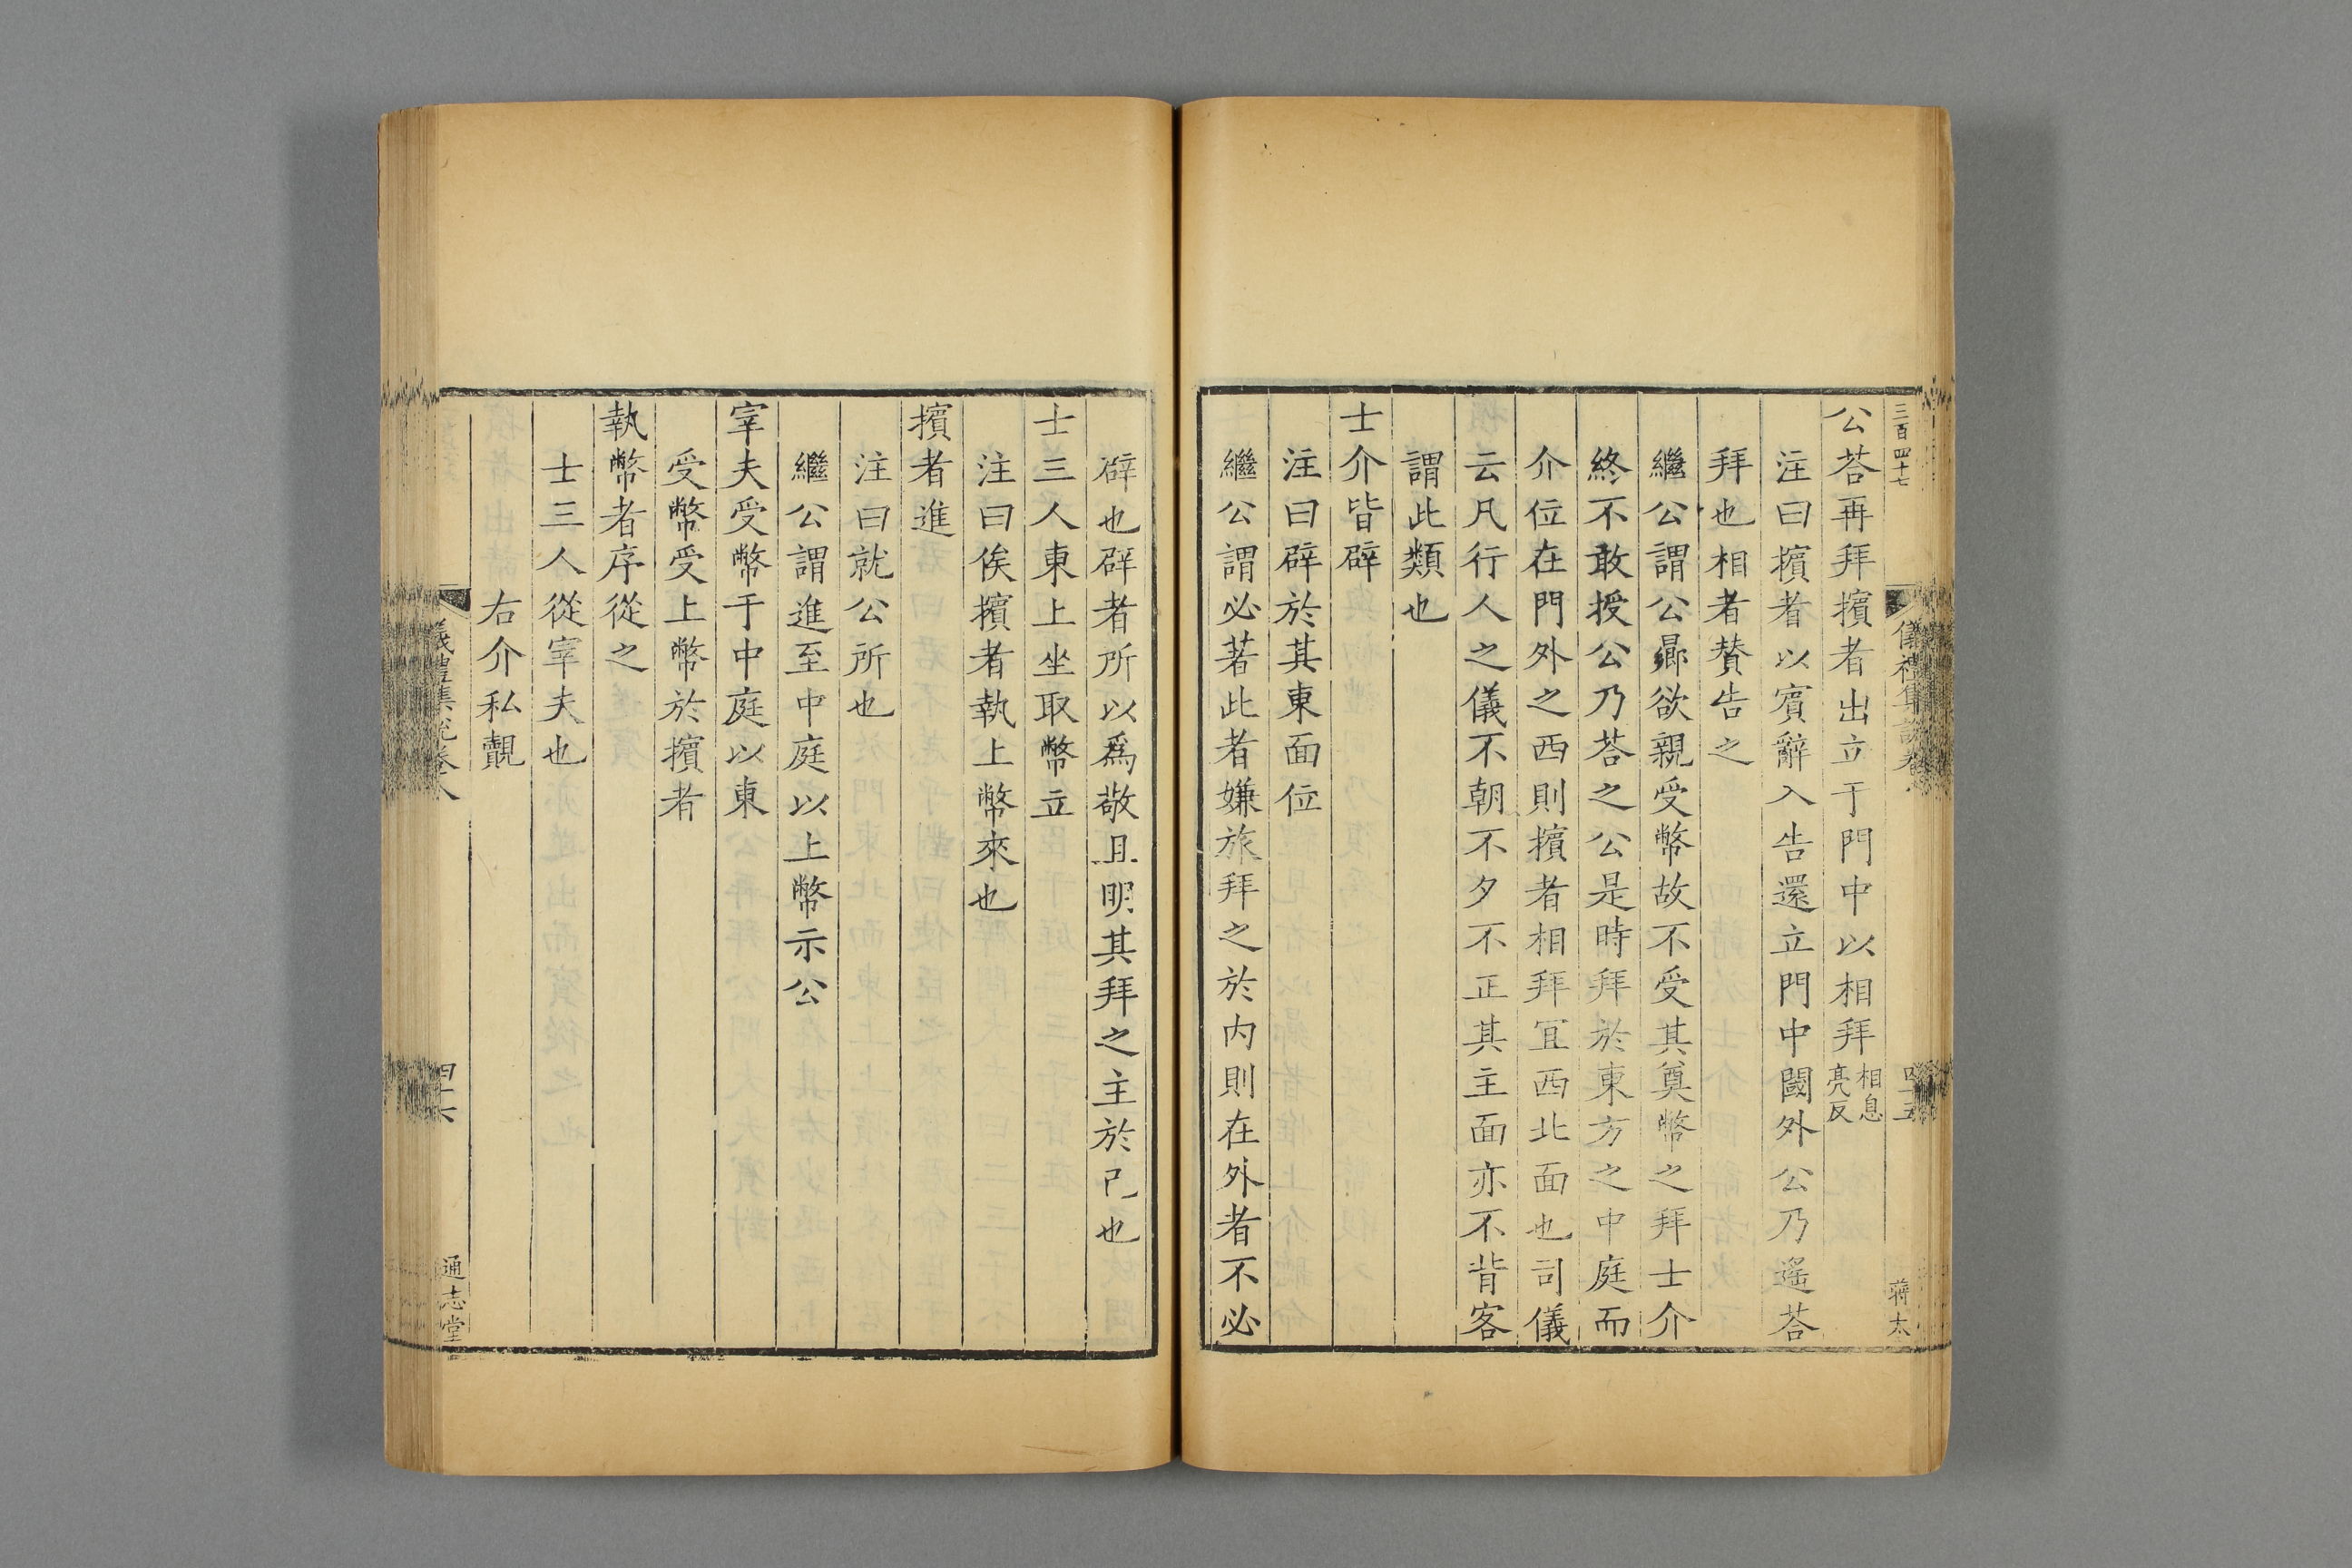 三百四十七
儀禮集說卷
四十五
蔣太
公荅再拜擯者出立于門中以相拜相息亮反
注曰擯者以賓辭入告還立門中闑外公乃遙荅
拜也相者賛告之
繼公謂公曏欲親受幣故不受其奠幣之拜士介
終不敢授公乃荅之公是時拜於東方之中庭而
介位在門外之西則擯者相拜冝西北面也司儀
云凡行人之儀不朝不夕不正其主面亦不背客
謂此類也
士介皆辟
注曰辟於其東面位
繼公謂必著此者嫌旅拜之於內則在外者不必
辟也辟者所以爲敬且明其拜之主於己也
士三人東上坐取幣立
注曰俟擯者執上幣來也
擯者進
注曰就公所也
繼公謂進至中庭以上幣示公
宰夫受幣于中庭以東
受幣受上幣於擯者
執幣者序從之
士三人從宰夫也
右介私覿
儀禮集說卷八
四十六
通志堂